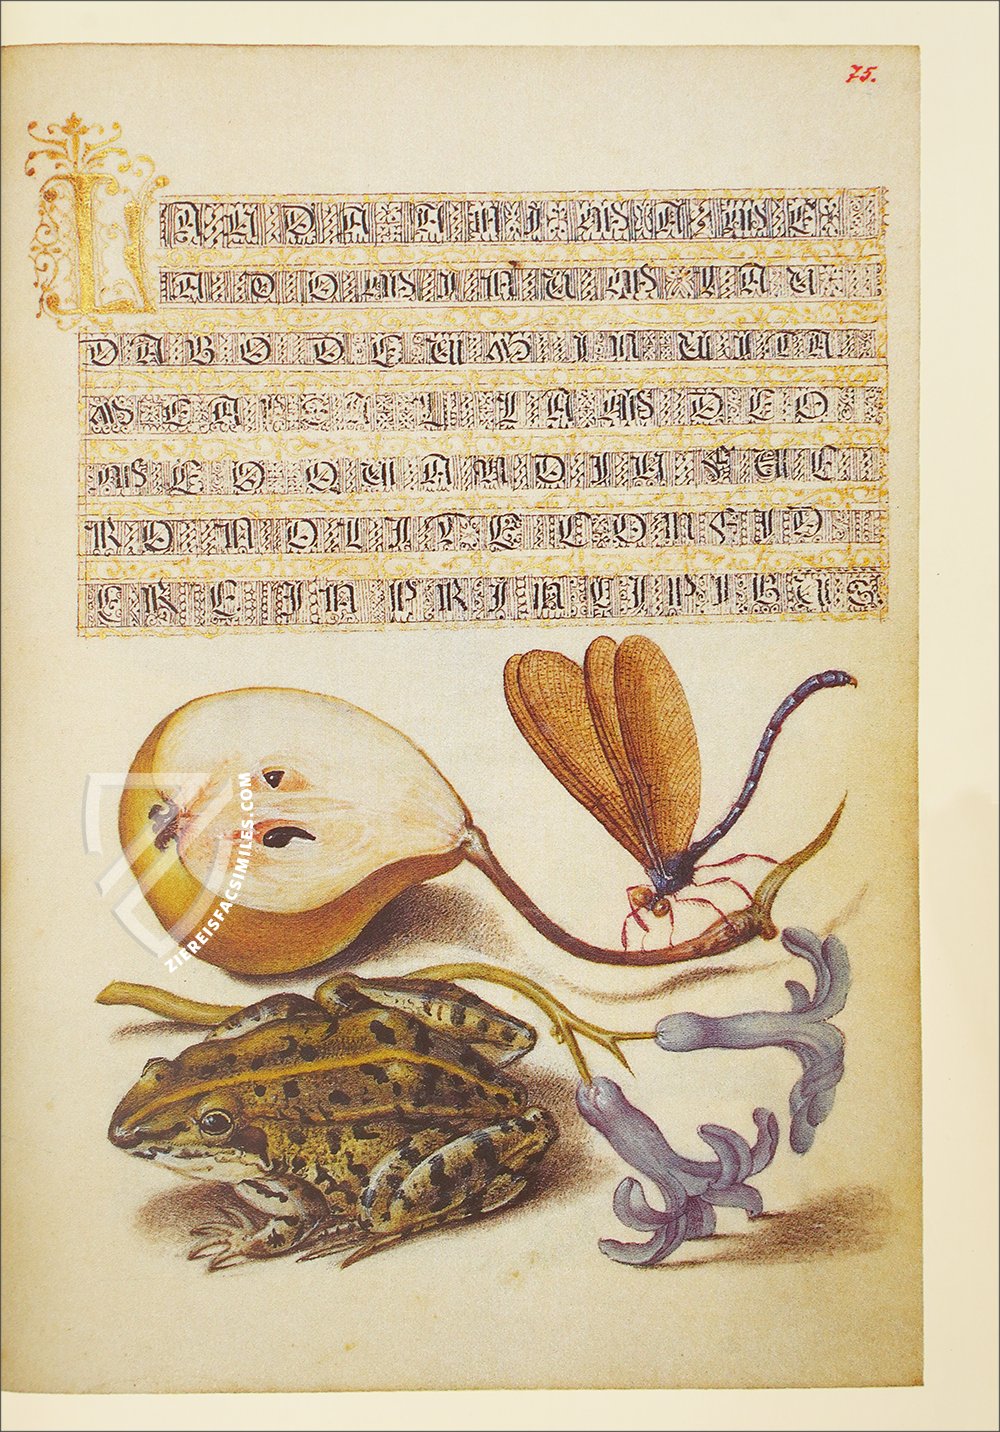 75.
LAUDA ANIMA ME
A DOMINUM LAU
DABO DEUM IN UITA
MEA PSALLAM DEO
MEO QUAMDIU FUE
RO NOLITE CONFID
ERE IN PRINCIPIBUS
ZIEREISFACSIMILES.COM